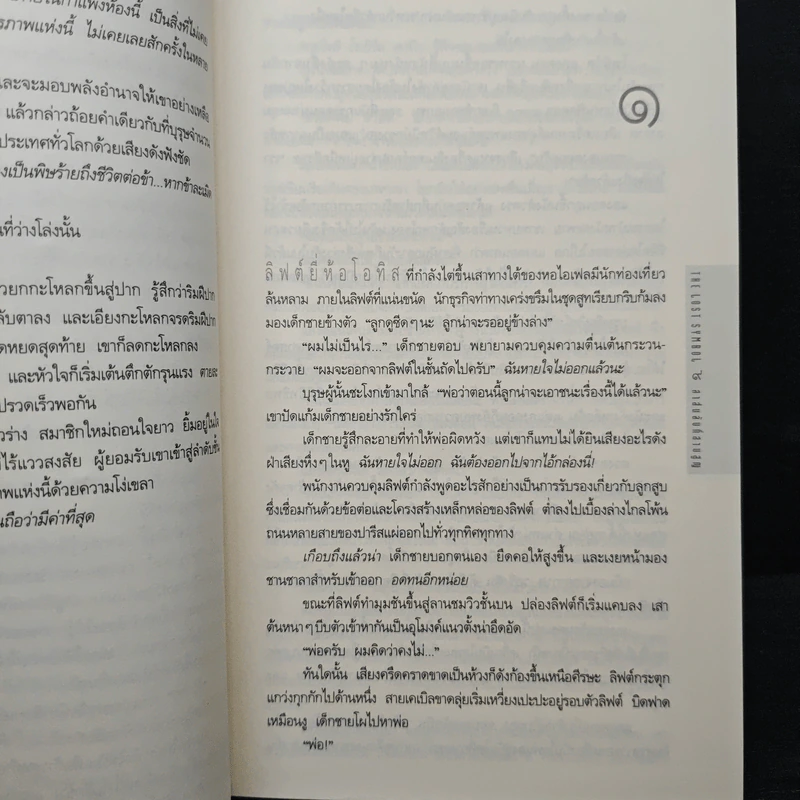 ในกำแพงห้องนี้ เป็นสิ่งที่ไม่เคย
รภาพแห่งนี้ ไม่เคยเลยสักครั้งในหลาย
และจะมอบพลังอำนาจให้เขาอย่างเหลือ
แล้วกล่าวถ้อยคำเดียวกับที่บุรุษจำนวน
ประเทศทั่วโลกด้วยเสียงดังฟังชัด
งเป็นพิษร้ายถึงชีวิตต่อข้า...หากข้าละเมิด
นที่ว่างโล่งนั้น
วยกกะโหลกขึ้นสู่ปาก รู้สึกว่าริมฝีปาก
ลับตาลง และเอียงกะโหลกจรดริมฝีปาก
ดหยดสุดท้าย เขาก็ลดกะโหลกลง
และหัวใจก็เริ่มเต้นตึกตักรุนแรง ตายละ
ปรวดเร็วพอกัน
วร่าง สมาชิกใหม่ถอนใจยาว ยิ้มอยู่ในใจ
ไร้แววสงสัย ผู้ยอมรับเขาเข้าสู่ลำดับชั้น
าพแห่งนี้ด้วยความโง่เขลา
นถือว่ามีค่าที่สุด
๑
ลิฟต์ยี่ห้อโอทิส ที่กำลังไต่ขึ้นเสาทางใต้ของหอไอเฟลมีนักท่องเที่ยว
ล้นหลาม ภายในลิฟต์ที่แน่นขนัด นักธุรกิจท่าทางเคร่งขรึมในชุดสูทเรียบกริบก้มลง
มองเด็กชายข้างตัว “ลูกดูซีดๆ นะ ลูกน่าจะรออยู่ข้างล่าง”
“ผมไม่เป็นไร...” เด็กชายตอบ พยายามควบคุมความตื่นเต้นกระวน-
กระวาย “ผมจะออกจากลิฟต์ในชั้นถัดไปครับ” ฉันหายใจไม่ออกแล้วนะ
บุรุษผู้นั้นชะโงกเข้ามาใกล้ “พ่อว่าตอนนี้ลูกน่าจะเอาชนะเรื่องนี้ได้แล้วนะ”
เขาปัดแก้มเด็กชายอย่างรักใคร่
เด็กชายรู้สึกละอายที่ทำให้พ่อผิดหวัง แต่เขาก็แทบไม่ได้ยินเสียงอะไรดัง
ฝ่าเสียงหึ่งๆ ในหู ฉันหายใจไม่ออก ฉันต้องออกไปจากไอ้กล่องนี่!
พนักงานควบคุมลิฟต์กำลังพูดอะไรสักอย่างเป็นการรับรองเกี่ยวกับลูกสูบ
ซึ่งเชื่อมกันด้วยข้อต่อและโครงสร้างเหล็กหล่อของลิฟต์ ต่ำลงไปเบื้องล่างไกลโพ้น
ถนนหลายสายของปารีสแผ่ออกไปทั่วทุกทิศทุกทาง
เกือบถึงแล้วน่า เด็กชายบอกตนเอง ยืดคอให้สูงขึ้น และเงยหน้ามอง
ชานชาลาสำหรับเข้าออก อดทนอีกหน่อย
ขณะที่ลิฟต์ทำมุมชันขึ้นสู่ลานชมวิวชั้นบน ปล่องลิฟต์ก็เริ่มแคบลง เสา
ต้นหนาๆ บีบตัวเข้าหากันเป็นอุโมงค์แนวตั้งน่าอึดอัด
“พ่อครับ ผมคิดว่าคงไม่...”
ทันใดนั้น เสียงครืดคราดขาดเป็นห้วงก็ดังก้องขึ้นเหนือศีรษะ ลิฟต์กระตุก
แกว่งกุกกักไปด้านหนึ่ง สายเคเบิลขาดลุ่ยเริ่มเหวี่ยงเปะปะอยู่รอบตัวลิฟต์ บิดฟาด
เหมือนงู เด็กชายโผไปหาพ่อ
“พ่อ!”
THE LOST SYMBOL สาส์นลับที่สาบสูญ